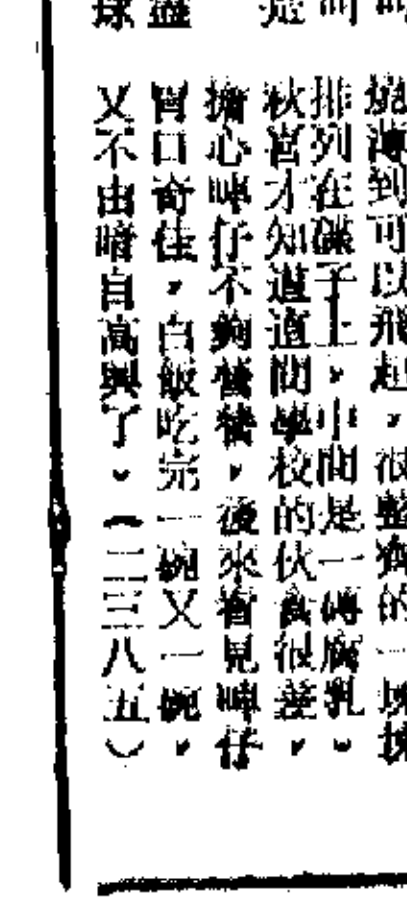 燒薄到可以飛起，很整齊的一塊塊
排列在碟子上，中間是一磚腐乳。
秋官才知道這間學校的伙食很差，
擔心啤仔不夠營養，後來看見啤仔
胃口奇佳，白飯吃完一碗又一碗，
又不由暗自高興了。（二三八五）